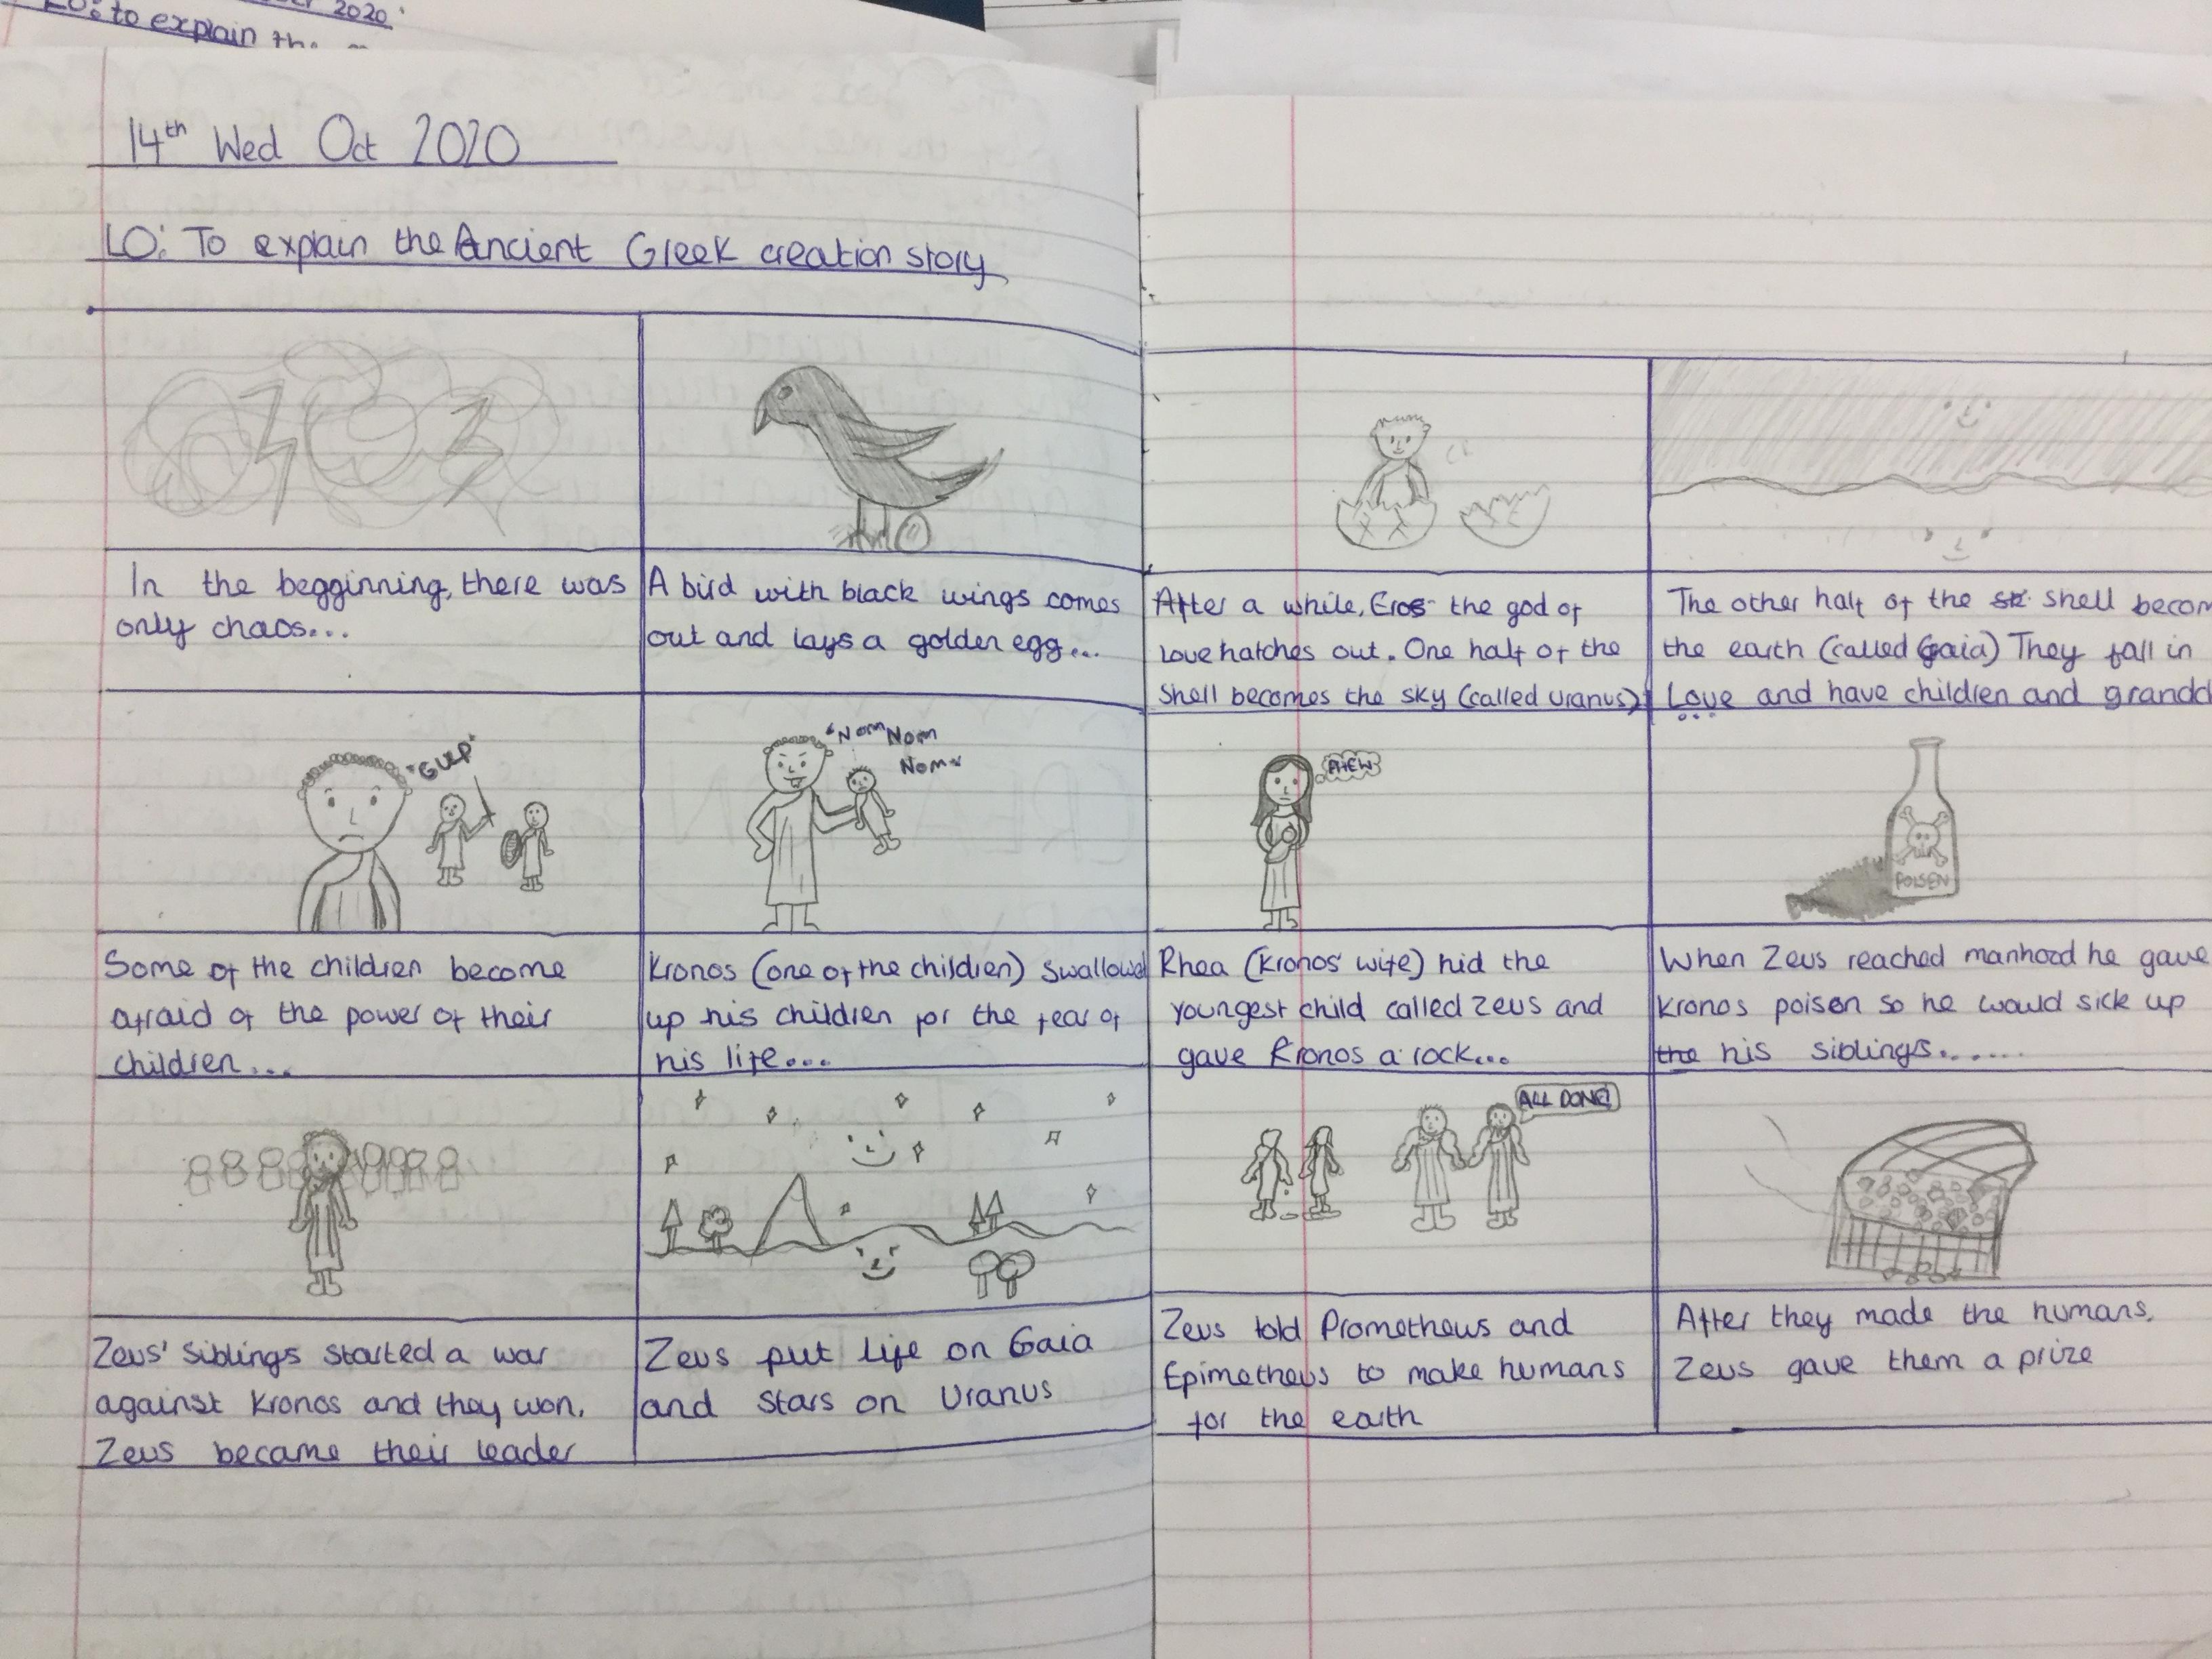 2020
LO: to explain the
14th Wed Oct 2020
LO: To explain the Ancient Greek creation story
In the begginning, there was
only chaos...
A bird with black wings comes
out and lays a golden egg...
After a while, Eros the god of
Love hatches out. One half of the
Shell becomes the sky (called Uranus)
The other half of the shell becom
the earth (called Gaia) They fall in
Love and have children and grandc
...
"GULP"
Some of the children become
afraid of the power of their
children...
"Nom Nom
Nom"
Kronos (one of the children) swallowed
up his children for the fear of
his life...
PHEW
Rhea (Kronos' wife) hid the
youngest child called Zeus and
gave Kronos a rock...
POISEN
When Zeus reached manhood he gave
Kronos poison so he would sick up
the his siblings.......
Zeus' siblings started a war
against Kronos and they won.
Zeus became their leader
Zeus put life on Gaia
and stars on Uranus
ALL DONE!
Zeus told Prometheus and
Epimetheus to make humans
for the earth
After they made the humans,
Zeus gave them a prize